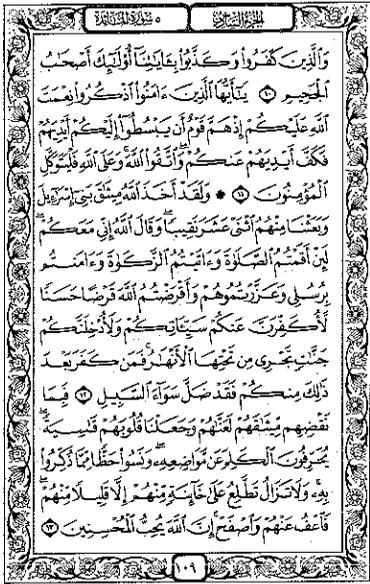 الجزء السادس ٥ سورة المائدة
وَالَّذِينَ كَفَرُوا وَكَذَّبُوا بِـَٔايَـٰتِنَآ أُو۟لَـٰٓئِكَ أَصْحَـٰبُ
الْجَحِيمِ ١٠ يَـٰٓأَيُّهَا الَّذِينَ ءَامَنُوا اذْكُرُوا نِعْمَتَ
اللَّهِ عَلَيْكُمْ إِذْ هَمَّ قَوْمٌ أَن يَبْسُطُوٓا إِلَيْكُمْ أَيْدِيَهُمْ
فَكَفَّ أَيْدِيَهُمْ عَنكُمْ وَاتَّقُوا اللَّهَ وَعَلَى اللَّهِ فَلْيَتَوَكَّلِ
الْمُؤْمِنُونَ ١١ ۞ وَلَقَدْ أَخَذَ اللَّهُ مِيثَـٰقَ بَنِىٓ إِسْرَٰٓءِيلَ
وَبَعَثْنَا مِنْهُمُ اثْنَىْ عَشَرَ نَقِيبًا وَقَالَ اللَّهُ إِنِّى مَعَكُمْ
لَئِنْ أَقَمْتُمُ الصَّلَوٰةَ وَءَاتَيْتُمُ الزَّكَوٰةَ وَءَامَنتُم
بِرُسُلِى وَعَزَّرْتُمُوهُمْ وَأَقْرَضْتُمُ اللَّهَ قَرْضًا حَسَنًا
لَّأُكَفِّرَنَّ عَنكُمْ سَيِّـَٔاتِكُمْ وَلَأُدْخِلَنَّكُمْ
جَنَّـٰتٍ تَجْرِى مِن تَحْتِهَا الْأَنْهَـٰرُ فَمَن كَفَرَ بَعْدَ
ذَٰلِكَ مِنكُمْ فَقَدْ ضَلَّ سَوَآءَ السَّبِيلِ ١٢ فَبِمَا
نَقْضِهِم مِّيثَـٰقَهُمْ لَعَنَّـٰهُمْ وَجَعَلْنَا قُلُوبَهُمْ قَـٰسِيَةً
يُحَرِّفُونَ الْكَلِمَ عَن مَّوَاضِعِهِۦ وَنَسُوا حَظًّا مِّمَّا ذُكِّرُوا
بِهِۦ وَلَا تَزَالُ تَطَّلِعُ عَلَىٰ خَآئِنَةٍ مِّنْهُمْ إِلَّا قَلِيلًا مِّنْهُمْ
فَاعْفُ عَنْهُمْ وَاصْفَحْ إِنَّ اللَّهَ يُحِبُّ الْمُحْسِنِينَ ١٣
١٠٩